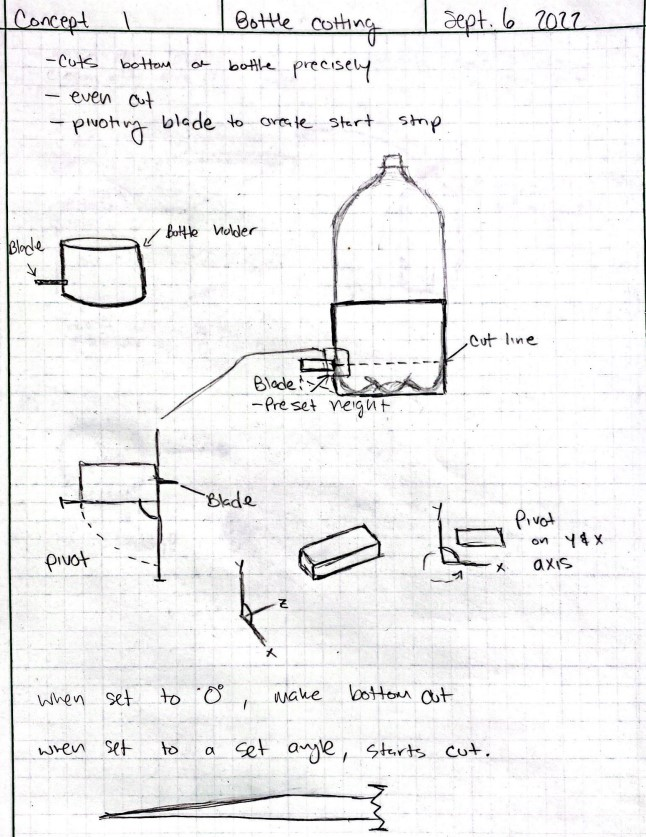 Concept 1
Bottle cutting
Sept. 6 2022
- Cuts bottom of bottle precisely
- even cut
- pivoting blade to create start strip
Bottle holder
Blade
Cut line
Blade:
- Preset height
Blade
Pivot
Pivot
on y & x
axis
y
x
y
z
x
when set to 0°, make bottom cut
when set to a set angle, starts cut.